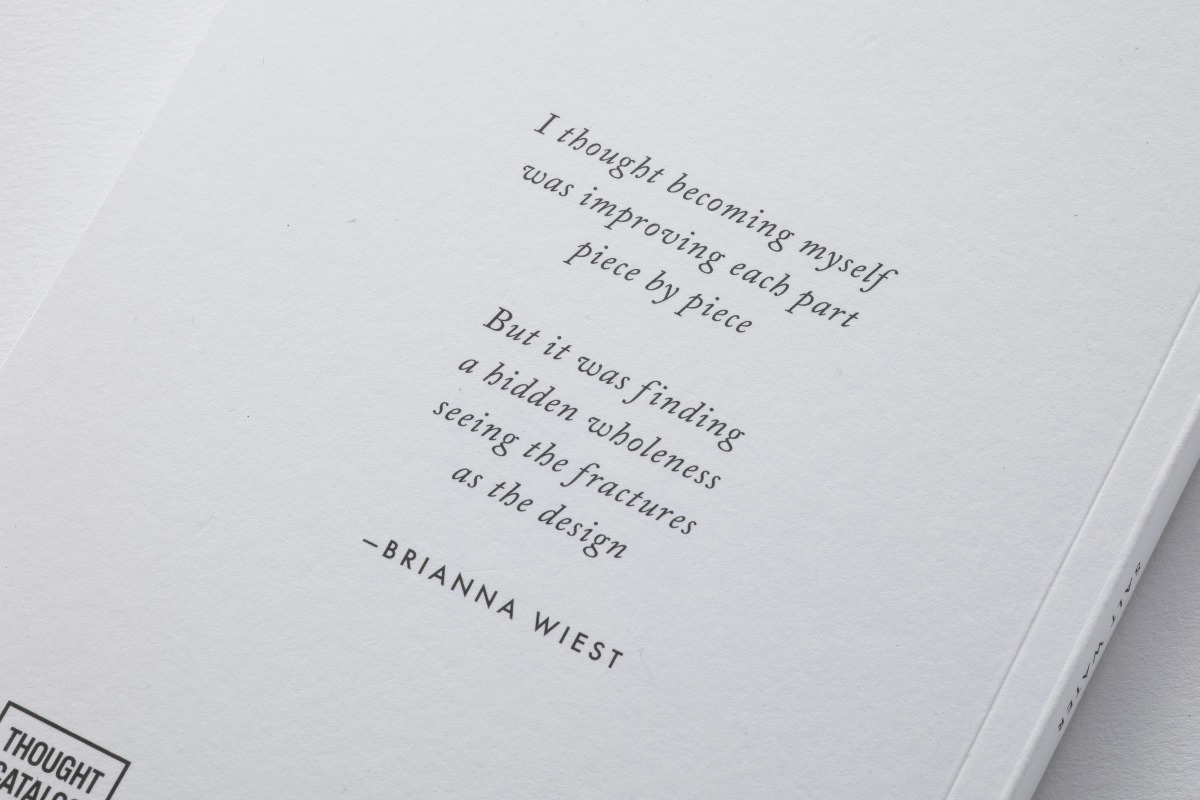 I thought becoming myself
was improving each part
piece by piece
But it was finding
a hidden wholeness
seeing the fractures
as the design
—BRIANNA WIEST
THOUGHT
SALT WATER